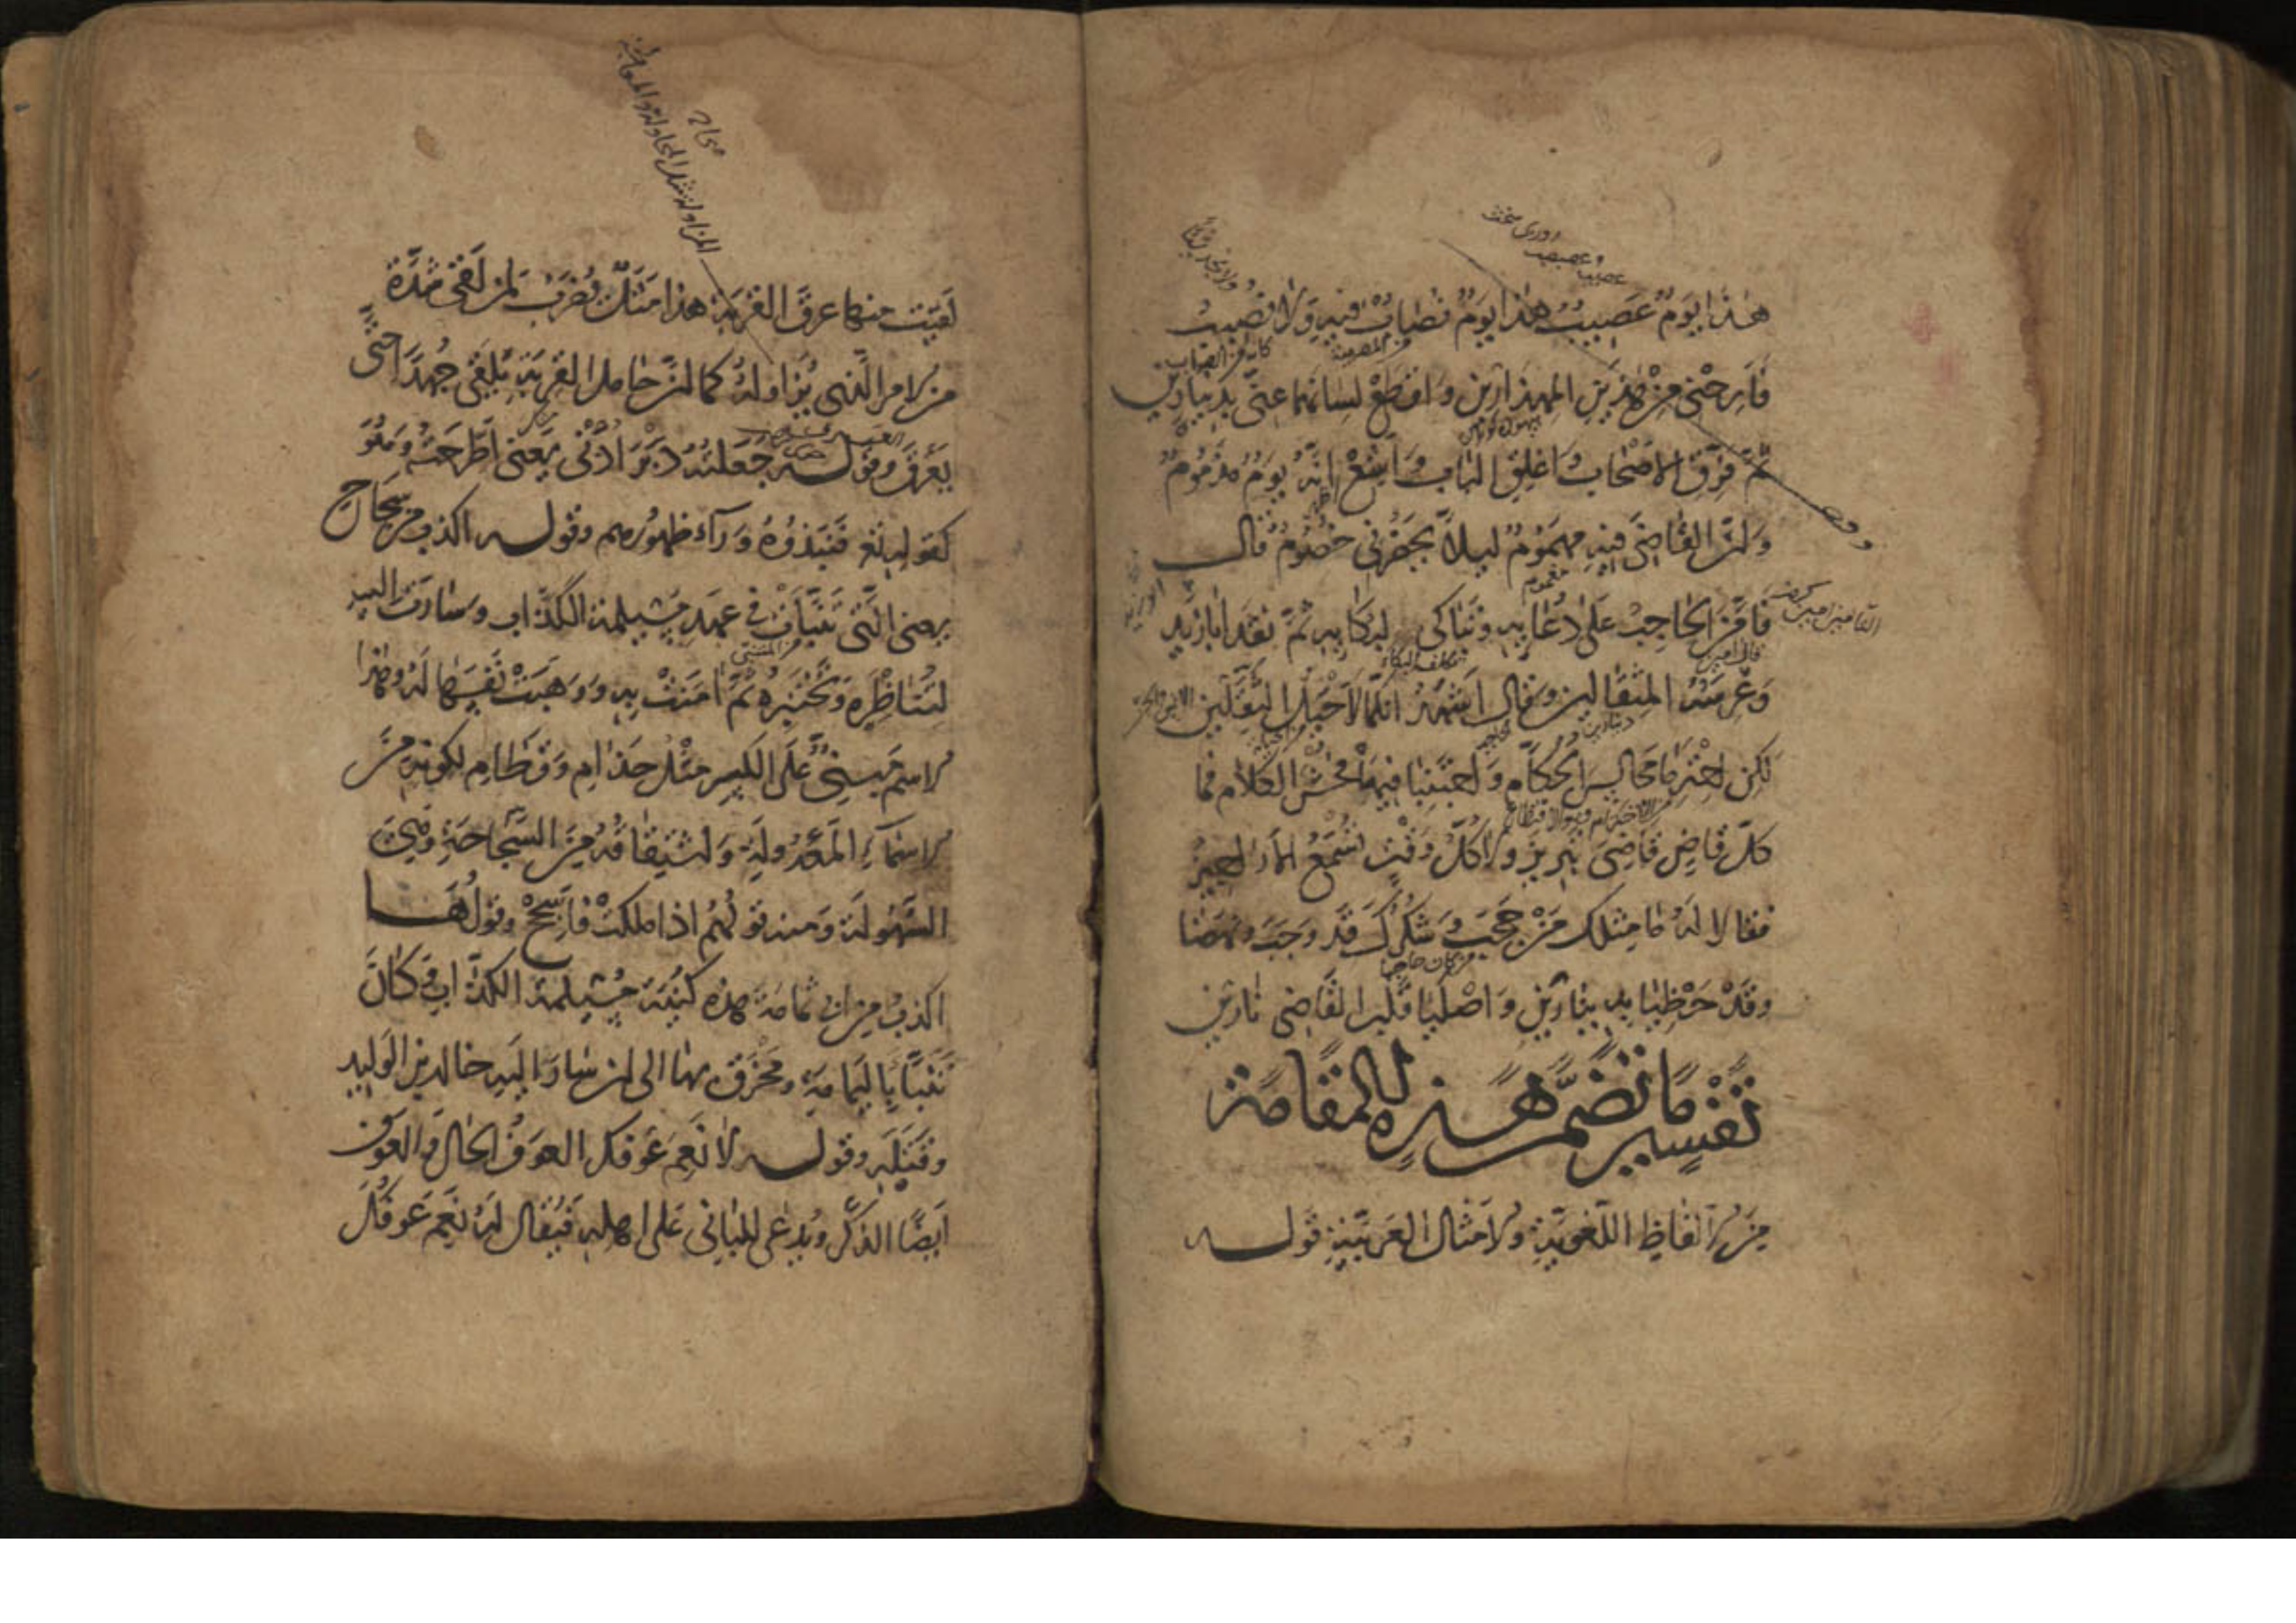 هذا يوم عصيب هذا يوم نصاب فيه ولا نصيب
فارحني من هذين المهذارين واقطع لسانهما عني بدينارين
ثم فرق الاصحاب واغلق الباب واشع انه يوم مذموم
وان القاضي فيه مهموم ليلا يحضرني خصوم قال
فامن الحاجب على دعايه وتباكى لبكايه ثم نقد ابا زيد
وعرسه المثقالين وقال اشهد انكما لاحيل الثقلين
لكن احترما مجالس الحكام واجتنبا فيها فحش الكلام فما
كل قاض قاضي تبريز ولا كل وقت تسمع الاراجيز
فقالا له ما مثلك من حجب وشكرك قد وجب ونهضا
وقد حظيا بدينارين واصليا قلب القاضي نارين
تفسير ما تضمن هذه المقامة
من الالفاظ اللغوية والامثال العربية قوله
لقيت منها عرق القربة هذا مثل يضرب لمن لقي شدة
من الامر الذي يزاوله كما ان حامل القربة يلقى جهدا حتى
يعرق وقوله جعلته دبر اذني يعني اطرحته وهو
كقوله تع فنبذوه وراء ظهورهم وقوله اكذب من سجاح
يعني التي تنبات في عهد مسيلمة الكذاب وسارت اليه
لتناظره وتختبره ثم امنت به ووهبت نفسها له وهذا
الاسم مبني على الكسر مثل حذام وقطام لكونه من
الاسماء المعدولة واشتقاقه من السجاحة وهي
السهولة ومنه قولهم اذا ملكت فاسجح وقولها
اكذب من ابي ثمامة هذه كنية مسيلمة الكذاب وكان
تنبا باليمامة ومخرق بها الى ان سار اليه خالد بن الوليد
وقتله وقوله لا نعم عوفك العوف الحال والعوف
ايضا الذكر ويدعى للباني على اهله فيقال له نعم عوفك